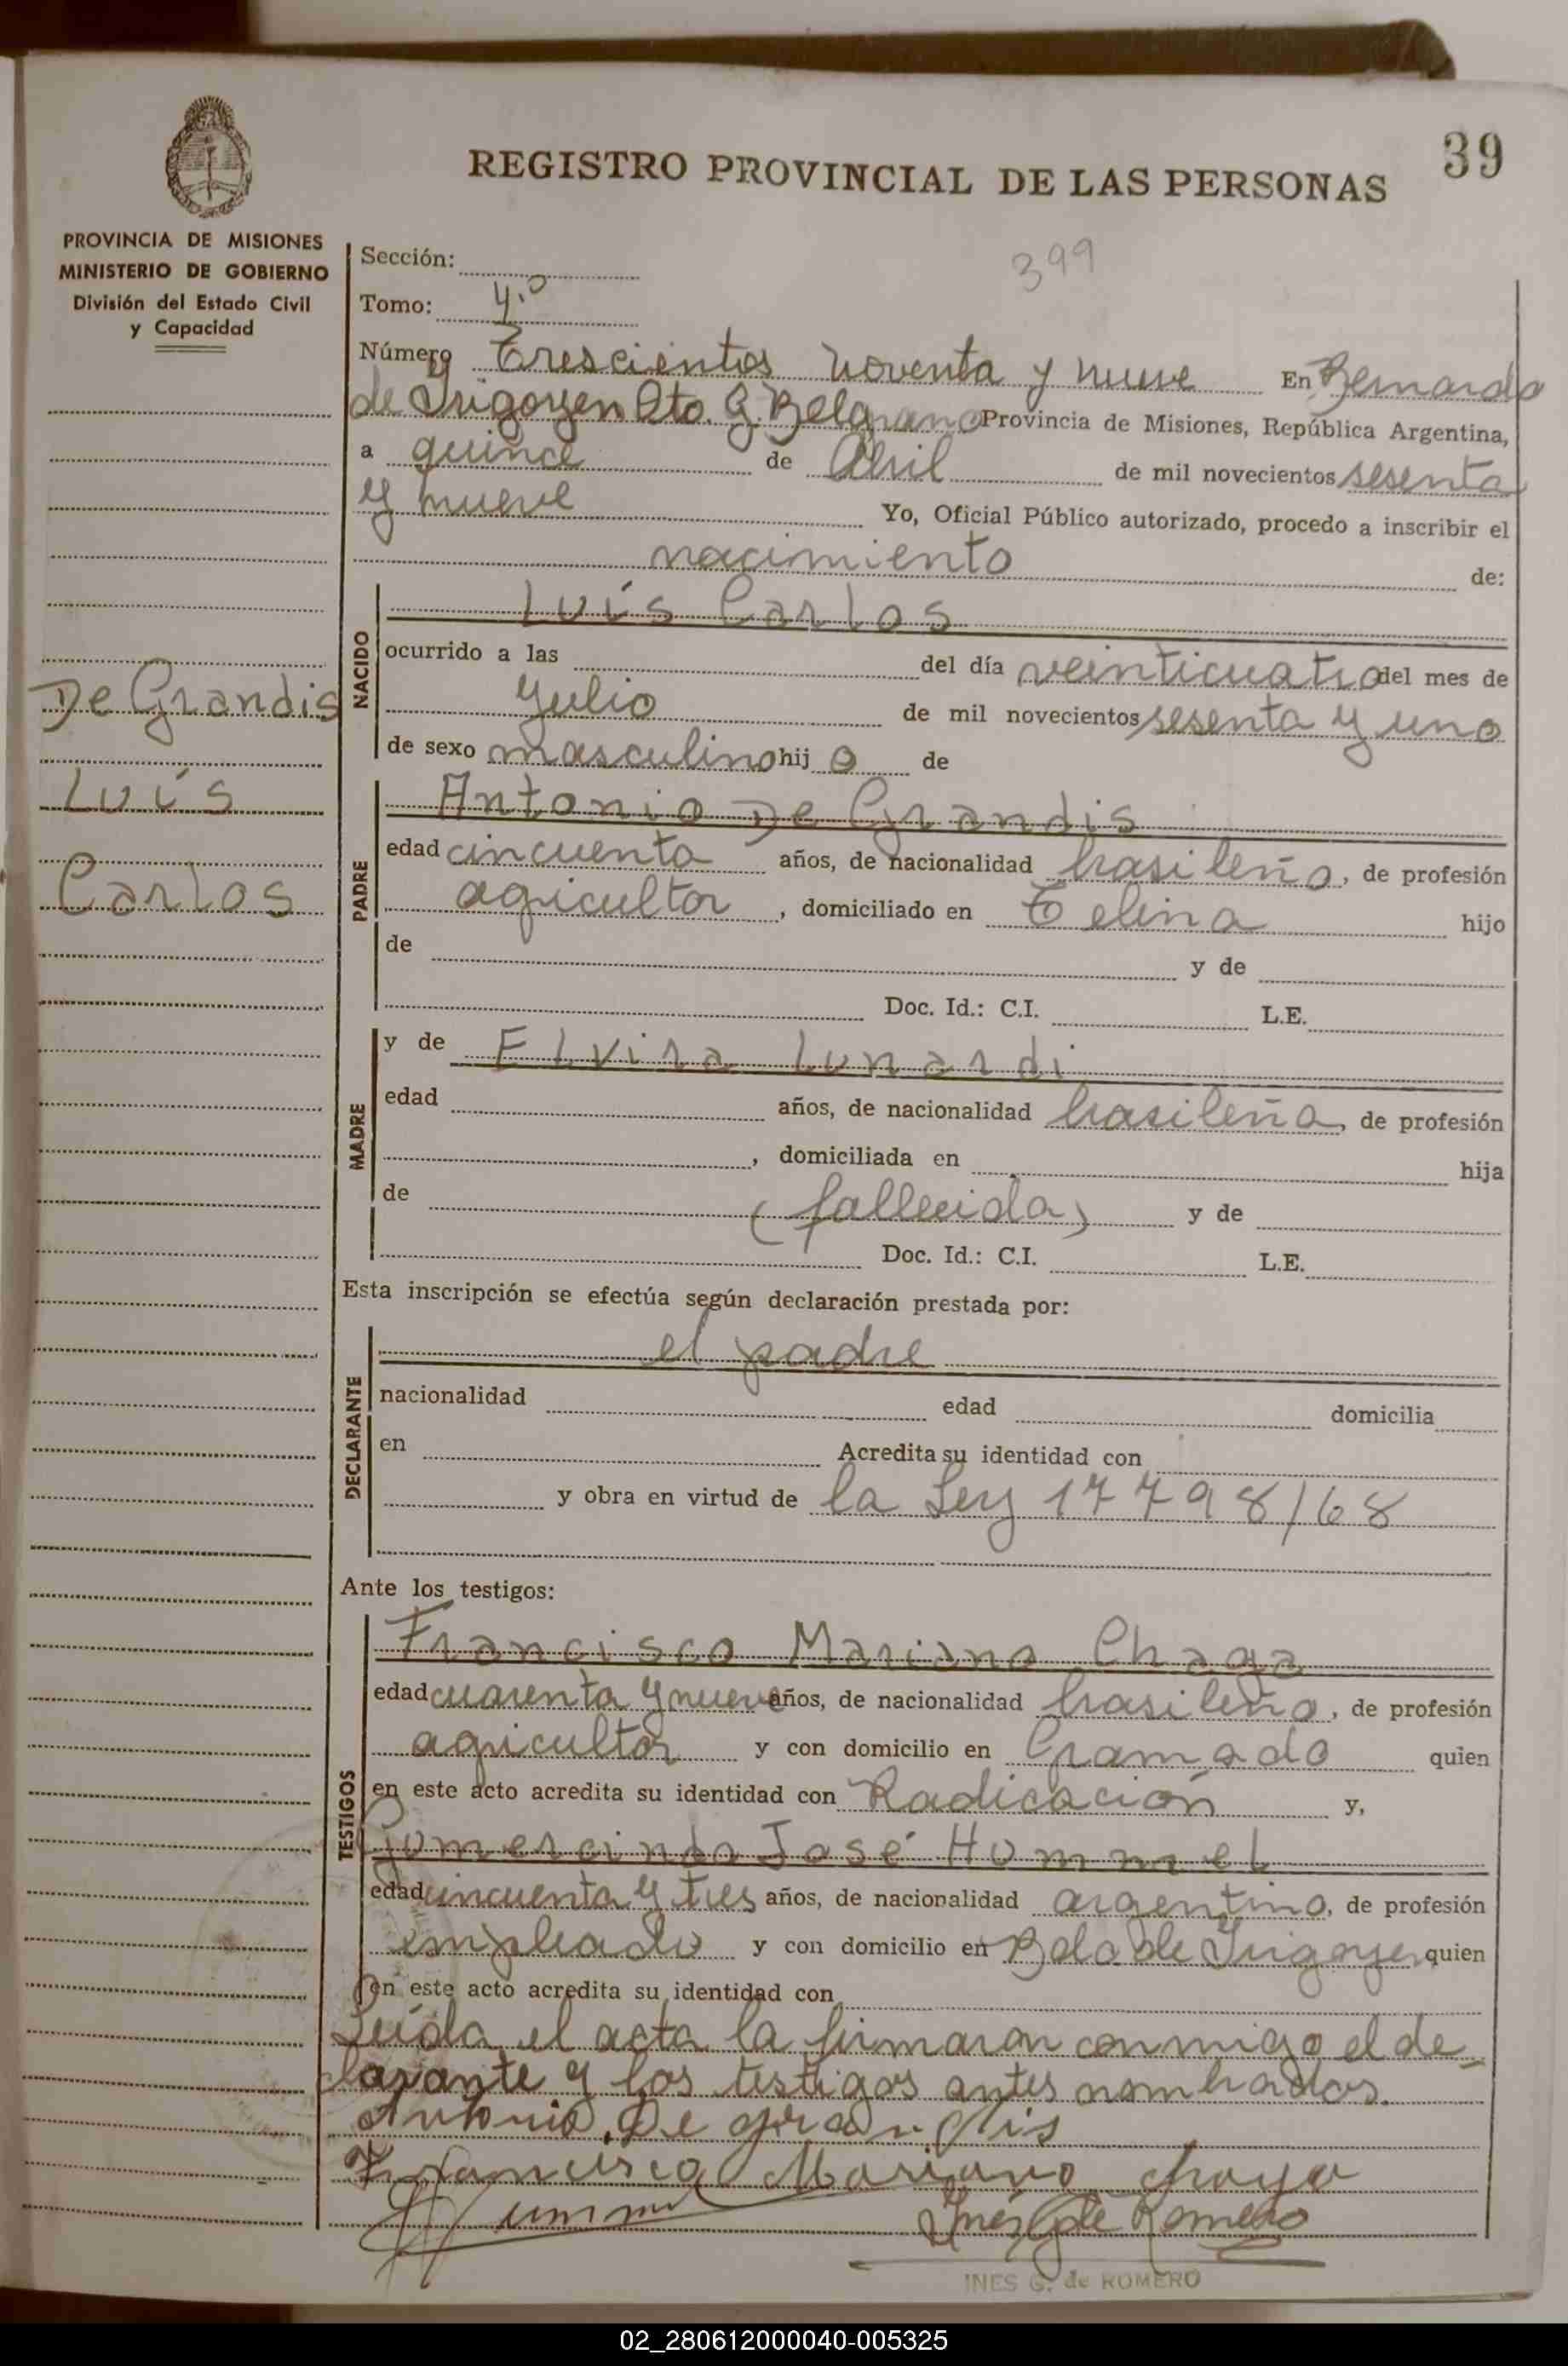 39
REGISTRO PROVINCIAL DE LAS PERSONAS
PROVINCIA DE MISIONES
MINISTERIO DE GOBIERNO
División del Estado Civil
y Capacidad
399
Sección:
Tomo: 4.º
Número Trescientos noventa y nueve En Bernardo
de Irigoyen Dto. G. Belgrano Provincia de Misiones, República Argentina,
a quince de Abril de mil novecientos sesenta
y nueve Yo, Oficial Público autorizado, procedo a inscribir el
nacimiento de:
De Grandis
Luís
Carlos
NACIDO
Luís Carlos
ocurrido a las del día veinticuatro del mes de
Julio de mil novecientos sesenta y uno
de sexo masculino hij o de
PADRE
Antonio De Grandis
edad cincuenta años, de nacionalidad brasileño, de profesión
agricultor, domiciliado en Tobelina hijo
de y de
Doc. Id.: C.I. L.E.
MADRE
y de Elvira Lunardi
edad años, de nacionalidad brasileña, de profesión
, domiciliada en hija
de (fallecida) y de
Doc. Id.: C.I. L.E.
Esta inscripción se efectúa según declaración prestada por:
DECLARANTE
el padre
nacionalidad edad domicilia
en Acredita su identidad con
y obra en virtud de la Ley 17798/68
Ante los testigos:
TESTIGOS
Francisco Mariano Chaga
edad cuarenta y nueve años, de nacionalidad brasileño, de profesión
agricultor y con domicilio en Gramado quien
en este acto acredita su identidad con Radicación y,
Gomercindo José Hummel
edad cincuenta y tres años, de nacionalidad argentino, de profesión
empleado y con domicilio en Bdo de Irigoyen quien
en este acto acredita su identidad con
Leída el acta la firmaron conmigo el de-
clarante y los testigos antes nombrados.
Antonio De grandis
Francisco Mariano chaga
Hummel Inés G de Romero
INES G. de ROMERO
02_280612000040-005325